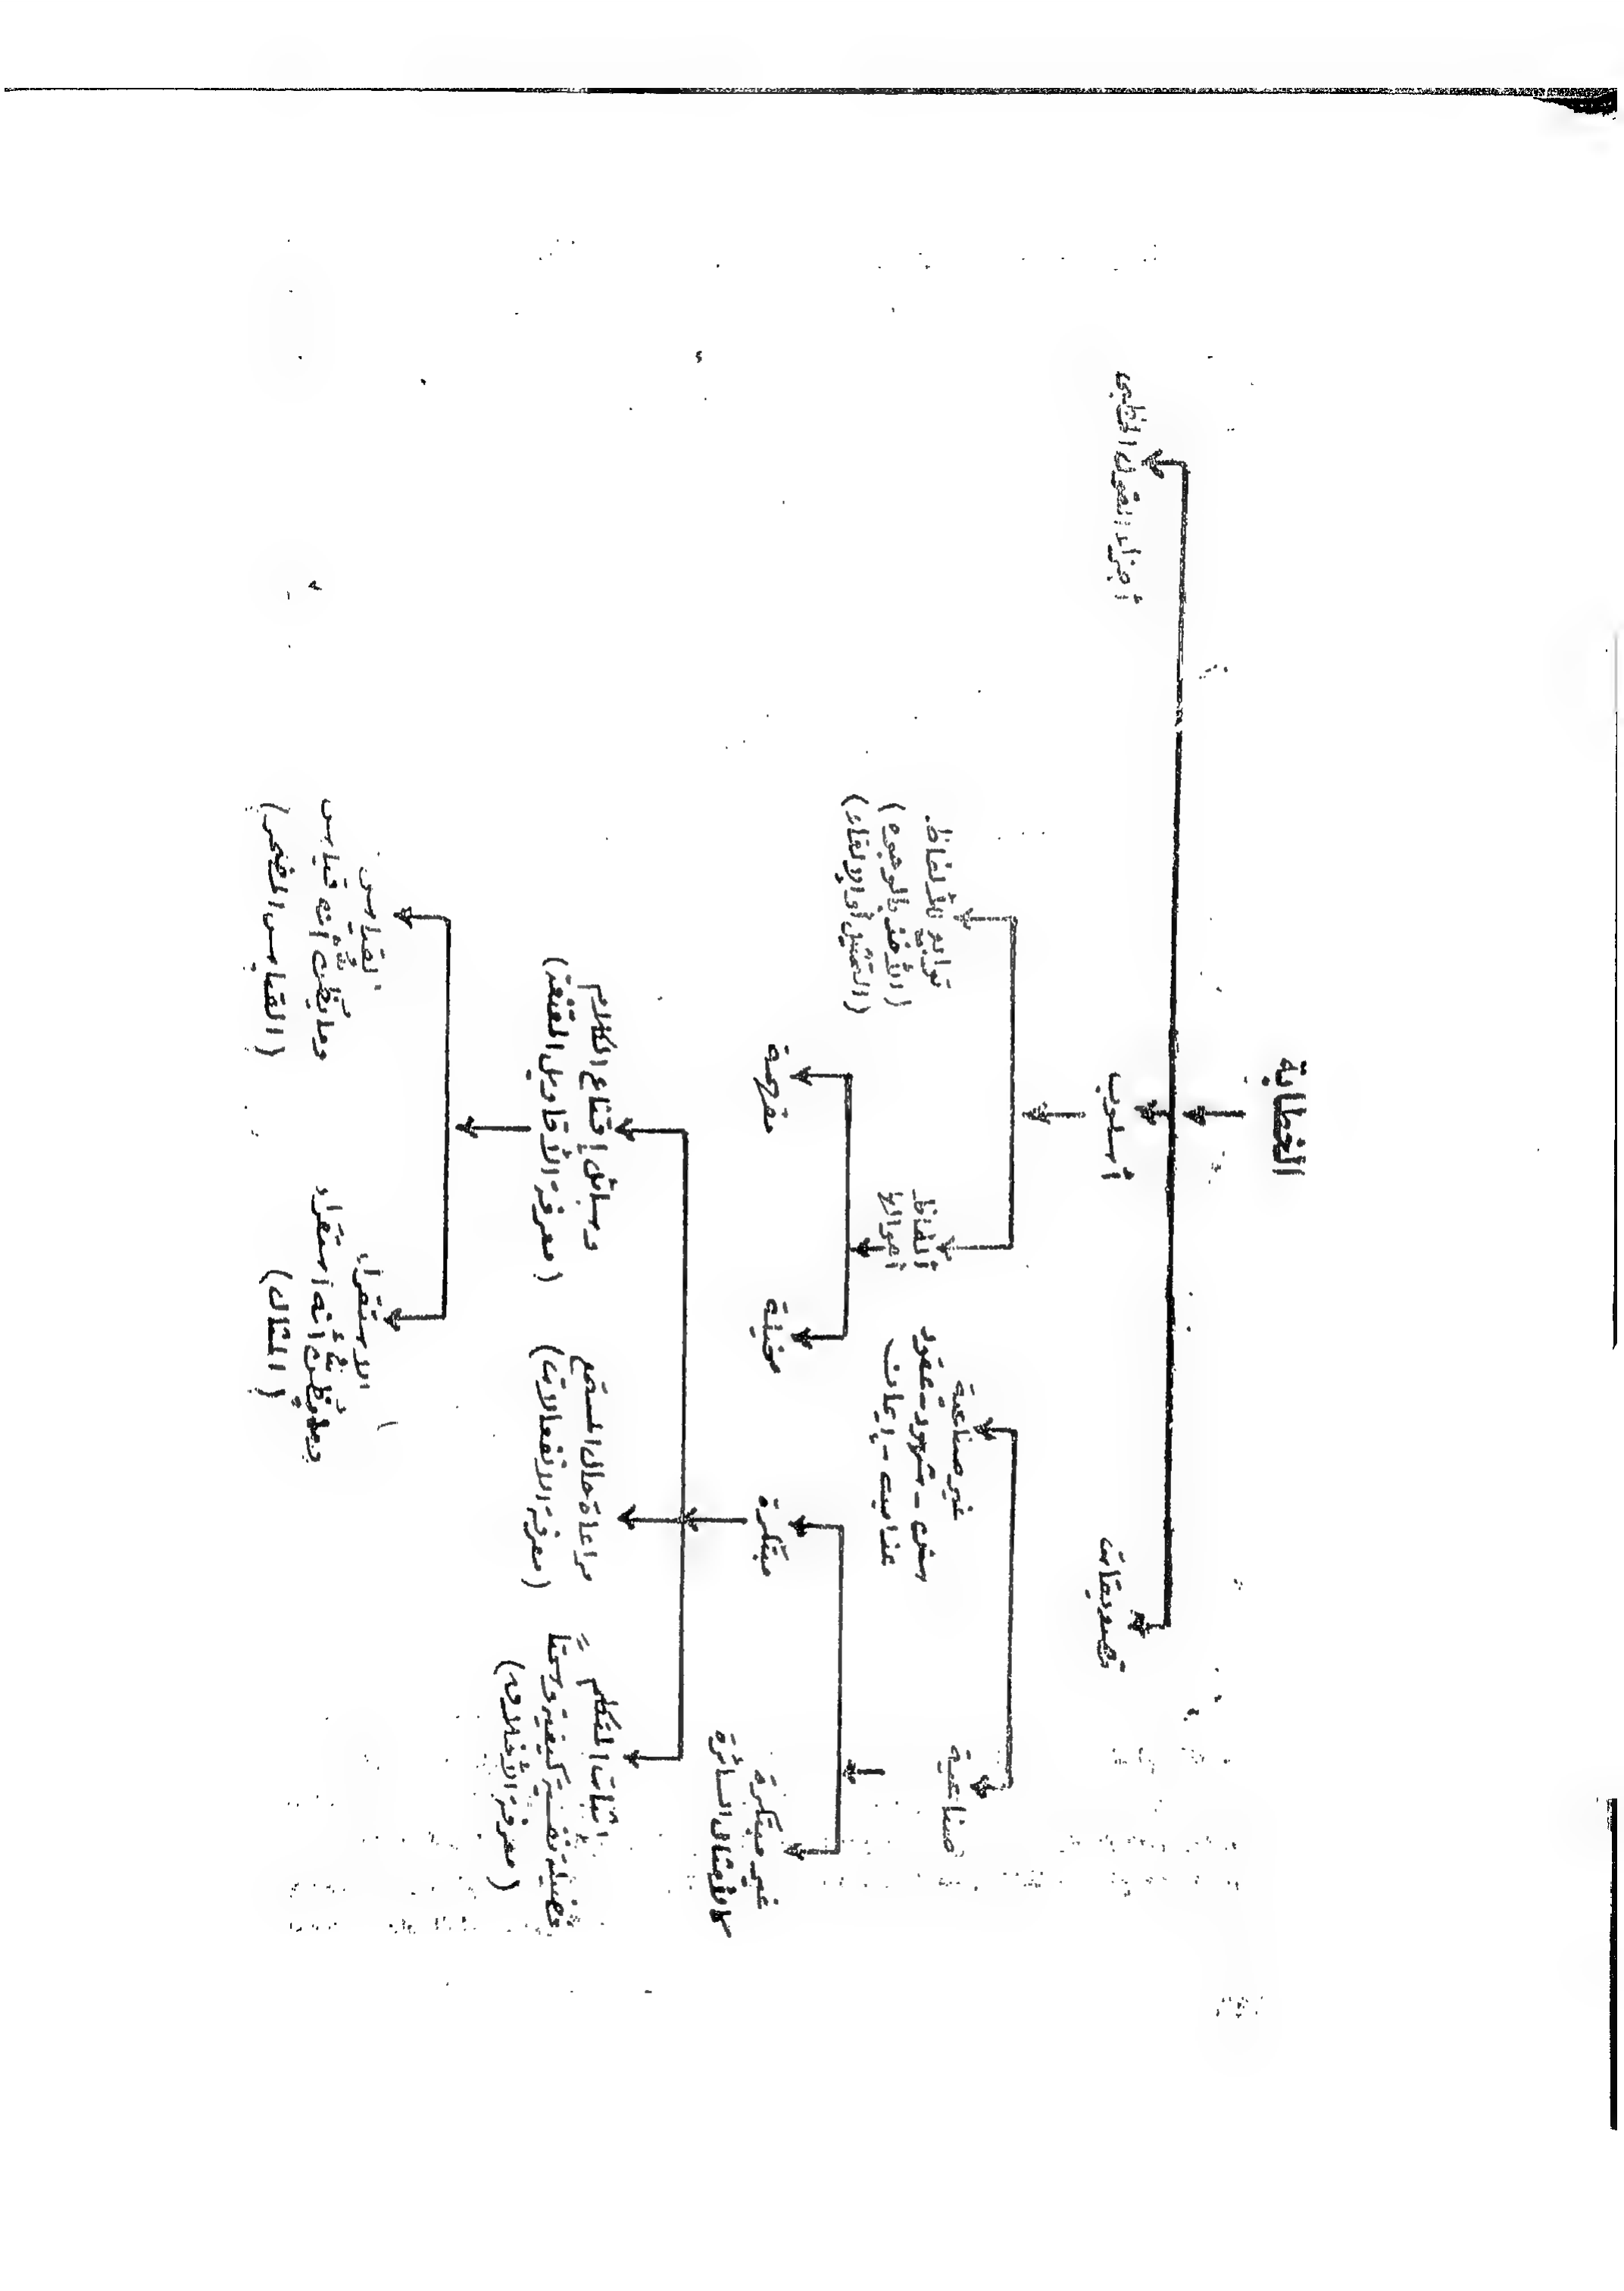 الخطابة
تصديقات
أسلوب
أجزاء القول الخطبى
صناعية
غير صناعية
سنن - شهود - عقود
عذاب - إيمان
ألفاظ
أحوالها
توابع للألفاظ
(الأخذ بالوجوه)
(التمثيل أو الإلقاء)
غير مبتكرة
كالأمثال السائرة
مبتكرة
مخيلة
مفهمة
إثبات المتكلم
فضيلة نفسه كيفية وسمتاً
(معرفة الأخلاق)
مراعاة حال المستمع
(معرفة الانفعالات)
وسائل إقناع الكلام
(معرفة الأقاويل المقنعة)
الاستقراء
وما يُظن أنه استقراء
(المثال)
القياس
وما يُظن أنه قياس
(القياس المضمر)